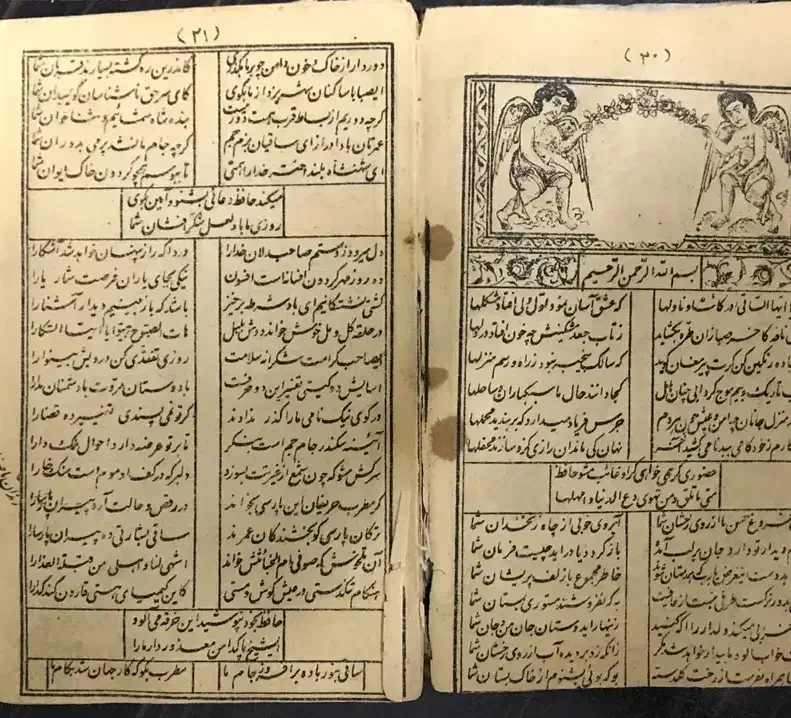 ( ۲۰ )
بسم الله الرحمن الرحیم
ایها الساقی ادر کاسا و ناولها که عشق آسان نمود اول ولی افتاد مشکلها
نافه کاخر صبا زان طره بگشاید ز تاب جعد مشکینش چه خون افتاد در دلها
رنگین کن گرت پیر مغان گوید که سالک بیخبر نبود ز راه و رسم منزلها
تاریک و بیم موج و گردابی چنین هایل کجا دانند حال ما سبکباران ساحلها
منزل جانان چه امن و عیش چون هر دم جرس فریاد میدارد که بربندید محملها
کارم ز خود کامی ببدنامی کشید آخر نهان کی ماند آن رازی کزو سازند محفلها
حضوری گر همی خواهی ازو غایب مشو حافظ
متی ما تلق من تهوی دع الدنیا و اهملها
فروغ حسن ماه از روی رخشان شما آبروی خوبی از چاه زنخدان شما
دیدار تو دارد جان بر لب آمده باز گردد یا در آید چیست فرمان شما
دست این غرض یارب که همدستان شوند خاطر مجموع ما زلف پریشان شما
بدور نرگست طرفی نبست از عافیت به که نفروشند مستوری بمستان شما
خرابی میکند دلدار را آگه کنید زینهار ایدوستان جان من و جان شما
خواب آلود ما بیدار خواهد شد مگر زانکه زد بر دیده آب از روی رخشان شما
همراه بفرست از رخت گلدسته بو که بوئی بشنوم از خاک بستان شما
( ۲۱ )
دور دار از خاک و خون دامن چو بر ما بگذری کاندرین ره کشته بسیارند قربان شما
ایصبا با ساکنان شهر یزد از ما بگوی کای سر حق ناشناسان گوی میدان شما
گرچه دوریم از بساط قرب همت دور نیست بنده شاه شمائیم و ثناخوان شما
عمرتان باد دراز ای ساقیان بزم جم گرچه جام ما نشد پر می بدوران شما
ای شهنشاه بلند اختر خدا را همتی تا ببوسم همچو گردون خاک ایوان شما
میکند حافظ دعائی بشنو و آمین بگوی
روزی ما باد لعل شکر افشان شما
دل میرود ز دستم صاحبدلان خدا را دردا که راز پنهان خواهد شد آشکارا
ده روز مهر گردون افسانه است افسون نیکی بجای یاران فرصت شمار یارا
کشتی شکستگانیم ای باد شرطه برخیز باشد که باز بینیم دیدار آشنا را
در حلقه گل و مل خوش خواند دوش بلبل هات الصبوح هبوا یا ایها السکارا
ایصاحب کرامت شکرانه سلامت روزی تفقدی کن درویش بینوا را
آسایش دو گیتی تفسیر این دو حرفست با دوستان مروت با دشمنان مدارا
در کوی نیک نامی ما را گذر ندادند گر تو نمی پسندی تغییر ده قضا را
آئینه سکندر جام جم است بنگر تا بر تو عرضه دارد احوال ملک دارا
سرکش مشو که چون شمع از غیرتت بسوزد دلبر که در کف او موم است سنگ خارا
گر مطرب حریفان این پارسی بخواند در رقص و حالت آرد پیران پارسا را
ترکان پارسی گو بخشندگان عمرند ساقی بشارتی ده پیران پارسا را
آن تلخوش که صوفی ام الخبائثش خواند اشهی لنا و احلی من قبلة العذارا
هنگام تنگدستی در عیش کوش و مستی کاین کیمیای هستی قارون کند گدا را
حافظ بخود نپوشید این خرقه می آلود
ایشیخ پاکدامن معذور دار ما را
ساقی بنور باده برافروز جام ما مطرب بگو که کار جهان شد بکام ما